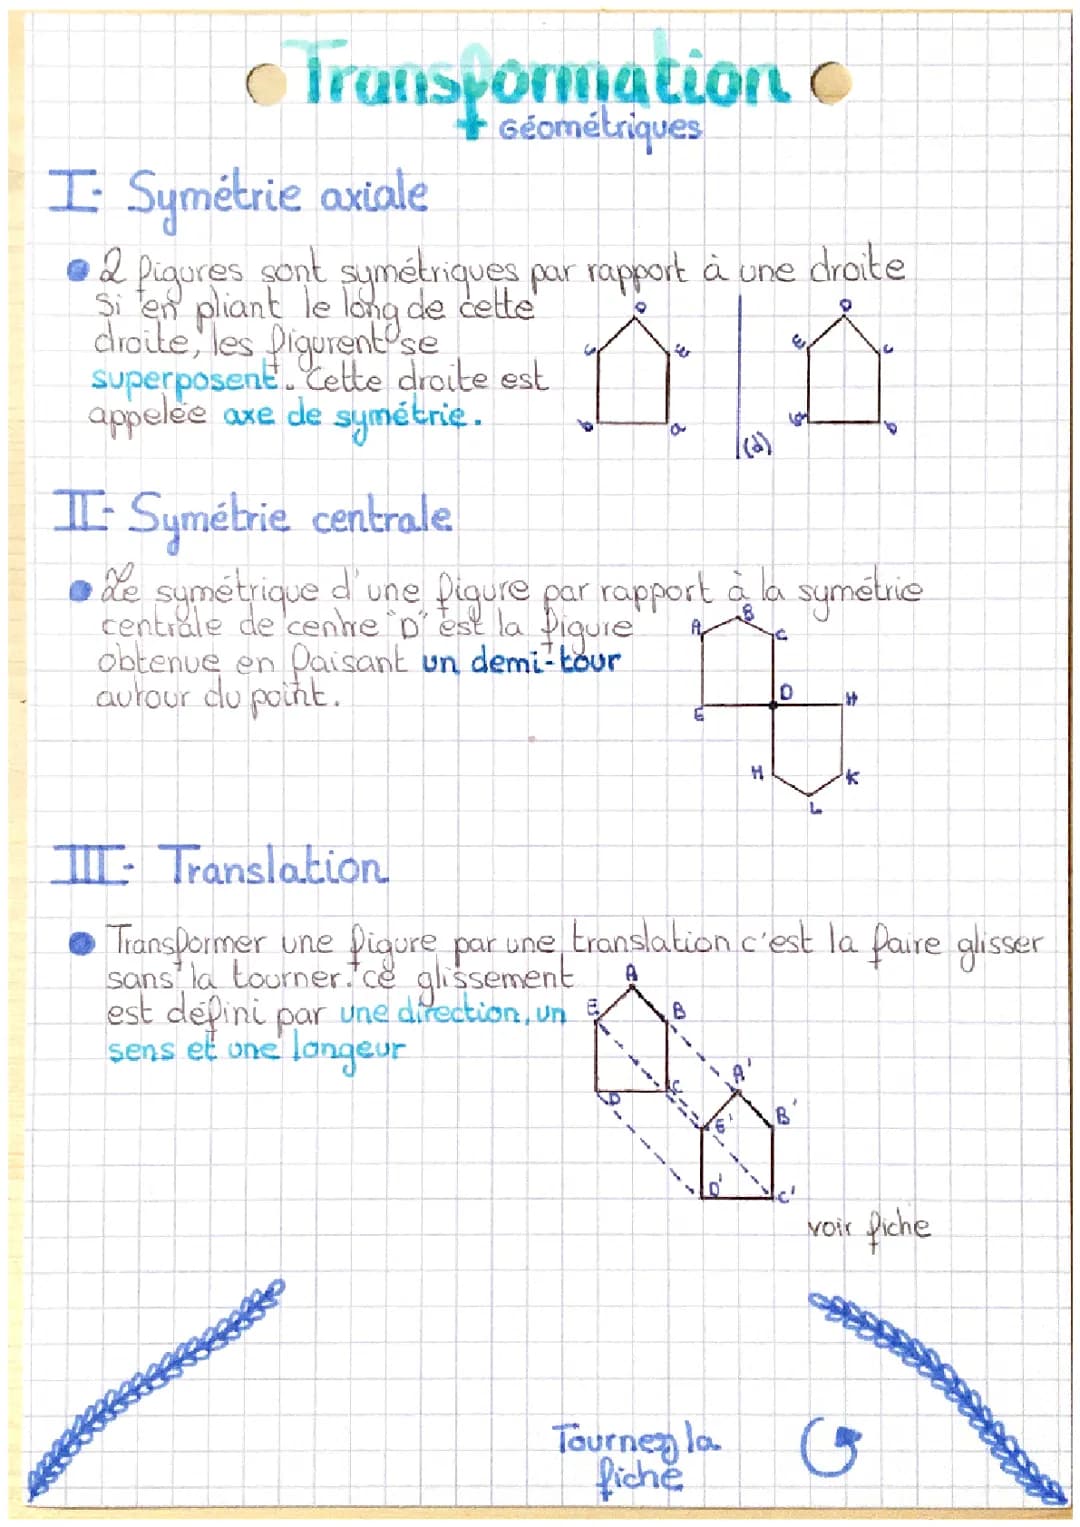 Transformation
Géométriques
I- Symétrie axiale
2 figures sont symétriques par rapport à une droite
si en pliant le long de cette
droite, les figurent se
superposent. Cette droite est
appelée axe de symétrie.
D
c
E
b
a
(d)
D
E
c
a
b
II- Symétrie centrale
Le symétrique d'une figure par rapport à la symétrie
centrale de centre "D" est la figure
obtenue en faisant un demi-tour
autour du point.
A
B
C
D
E
H
H
K
L
III- Translation
Transformer une figure par une translation c'est la faire glisser
sans la tourner. ce glissement
est défini par une direction, un
sens et une longeur
A
E
B
D
C
A'
E'
B'
D'
C'
voir fiche
Tournez la
fiche